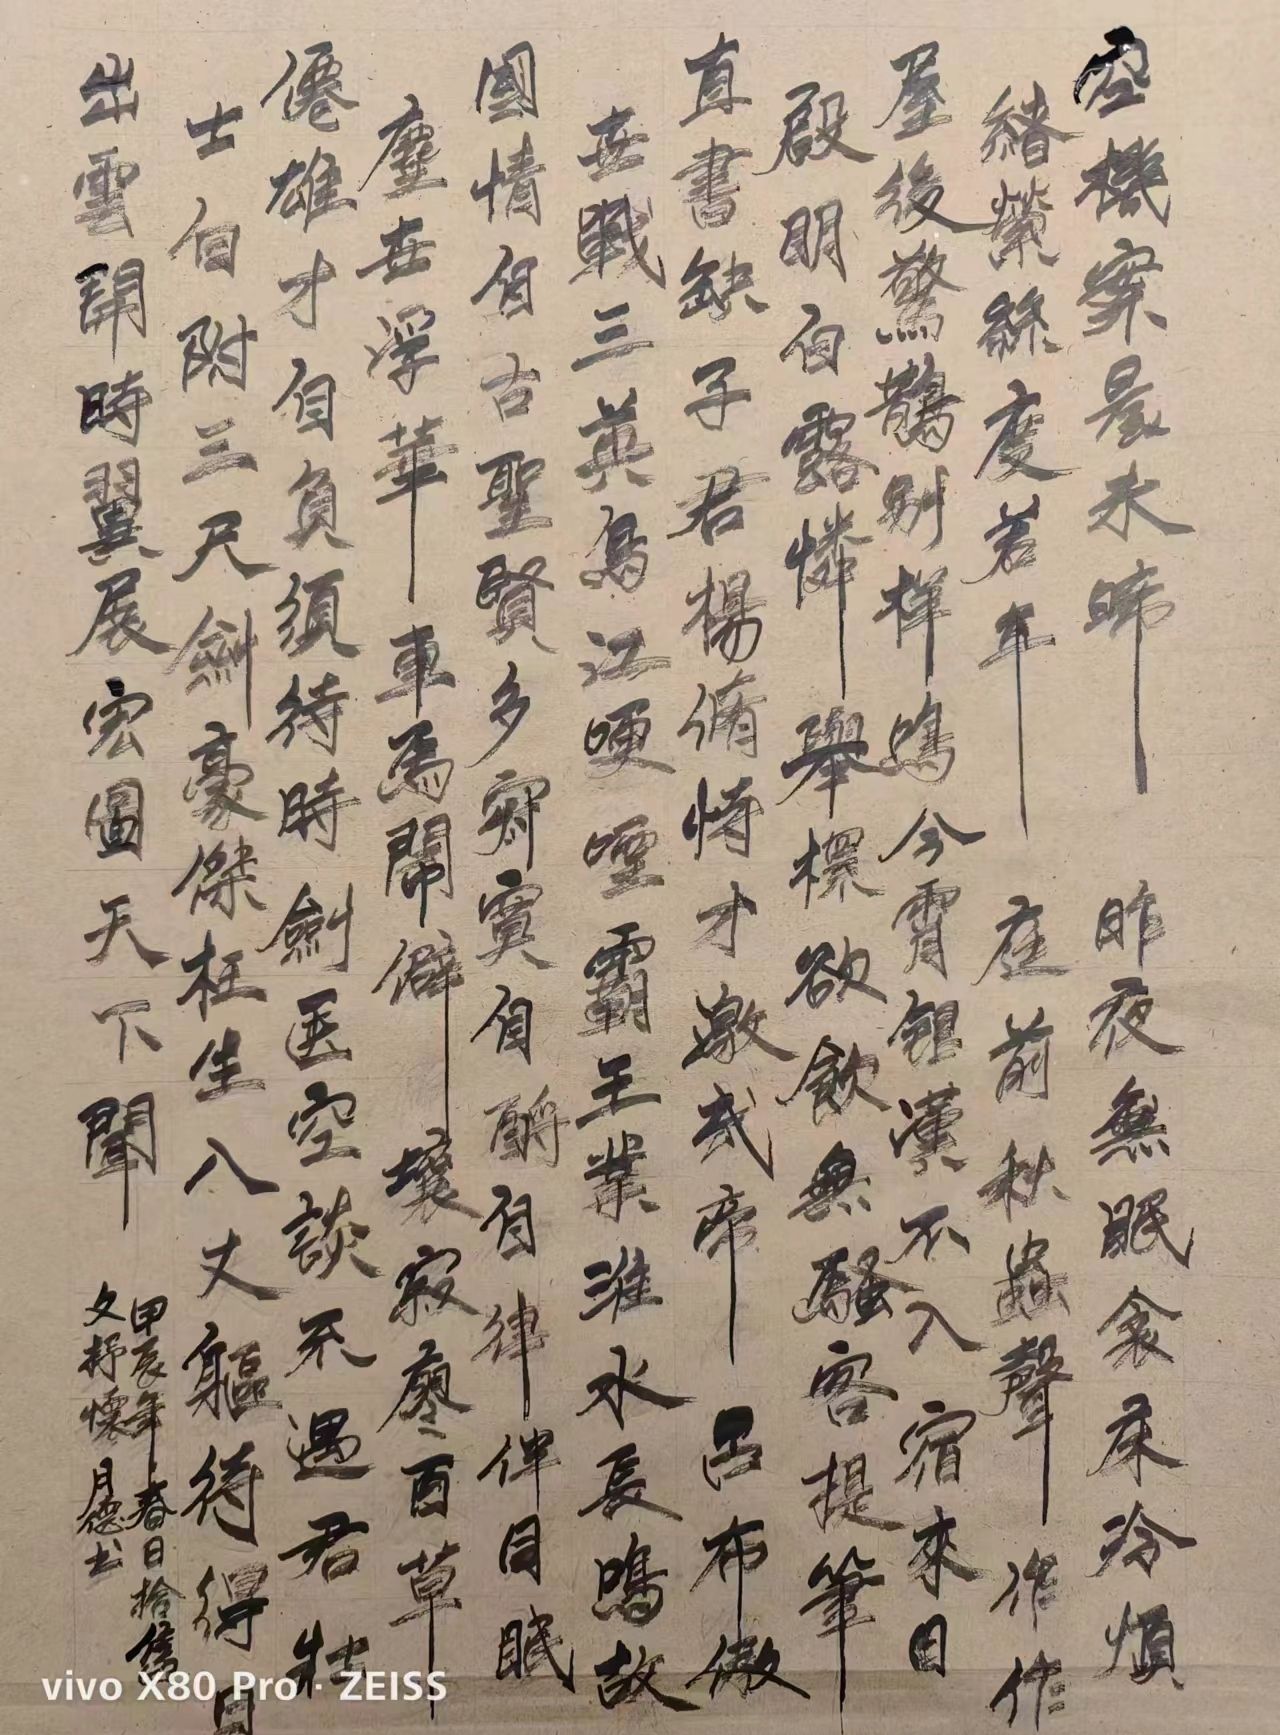 空機案晨未晞 昨夜無眠衾床冷煩
緒縈絲度若年 庭前秋蟲聲作作
屋後驚鵲別樣鳴今宵銀漢不入宿來日
啟明白露憐舉欲飲無騷客提筆
直書缺子君楊脩恃才激武帝 呂布傲
世戰三英烏江哽咽霸王業淮水長鳴故
國情自古聖賢多寂寞自酌自律伴同眠
塵世浮華車馬鬧僻壤寂寥百草
僊雄才自負須待時劍匣空談不遇君壯
士自附三尺劍豪傑枉生八丈軀待得日
出雲開時翼展宏圖天下聞
甲辰年春日拾舊
文抒懷月德书
vivo X80 Pro · ZEISS